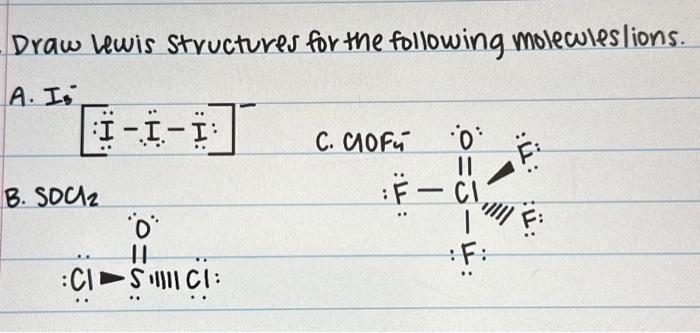 Draw Lewis structures for the following molecules/ions.
A. I₃⁻
[:I-I-I:]⁻
C. ClOF₄⁻
B. SOCl₂
O
||
:Cl S Cl:
:O:
||
F:
:F-Cl
F:
|
:F: